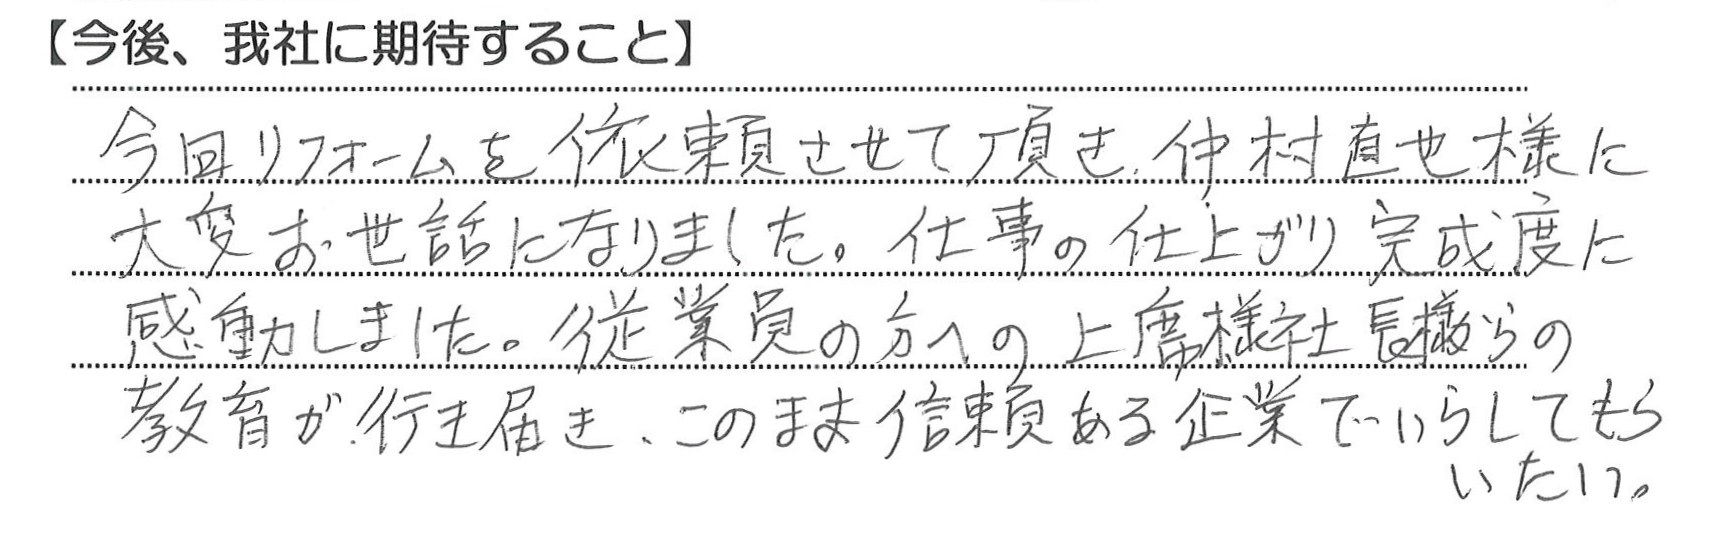 【今後、我社に期待すること】
今回リフォームを依頼させて頂き、仲村直也様に
大変お世話になりました。仕事の仕上がり完成度に
感動しました。従業員の方への上席様社長様らの
教育が行き届き、このまま信頼ある企業でいらしてもら
いたい。